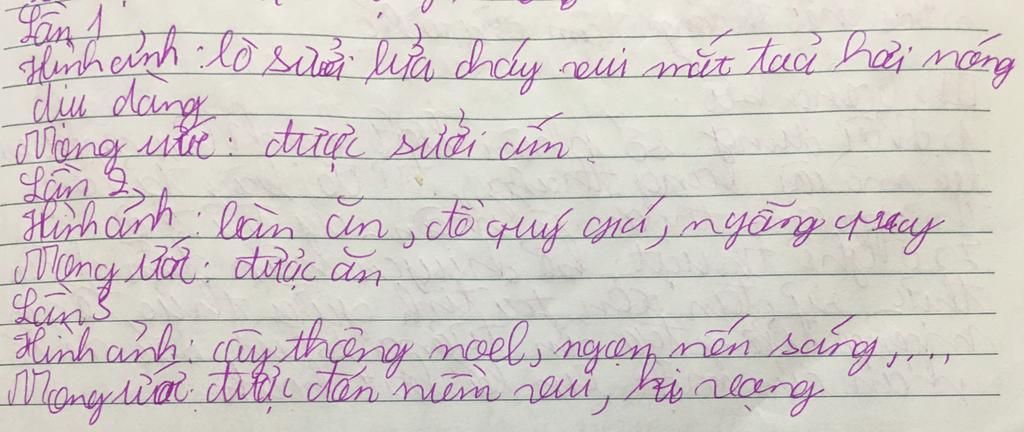 Lần 1
Hình ảnh: lò sưởi lửa cháy vui mắt toả hơi nóng
dịu dàng
Mộng ước: được sưởi ấm
Lần 2
Hình ảnh: bàn ăn, đồ quý giá, ngỗng quay
Mộng ước: được ăn
Lần 3
Hình ảnh: cây thông noel, ngọn nến sáng,....
Mộng ước: được đón niềm vui, hi vọng